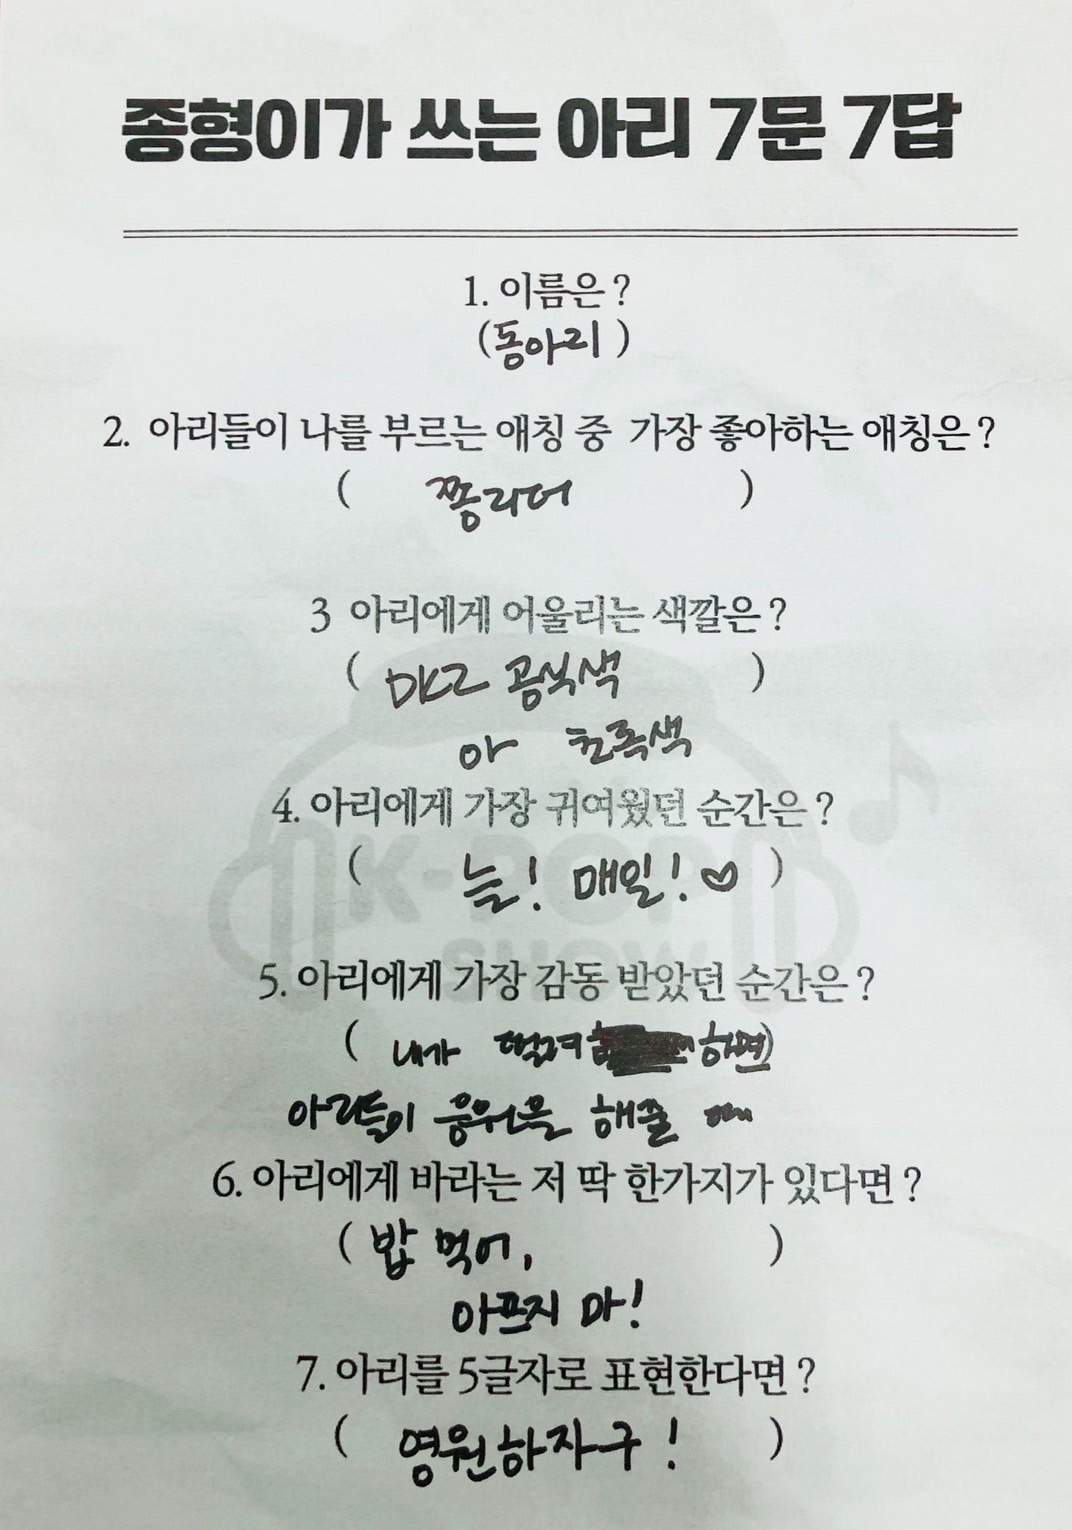 종형이가 쓰는 아리 7문 7답
1. 이름은?
(동아리)
2. 아리들이 나를 부르는 애칭 중 가장 좋아하는 애칭은?
( 쫑리더 )
3 아리에게 어울리는 색깔은?
( DKZ 공식색 )
아 초록색
4. 아리에게 가장 귀여웠던 순간은?
( 늘! 매일!♡ )
5. 아리에게 가장 감동 받았던 순간은?
( 내가 떨려 하면)
아리들이 응원을 해줄 때
6. 아리에게 바라는 저 딱 한가지가 있다면?
( 밥 먹어, )
아프지 마!
7. 아리를 5글자로 표현한다면?
( 영원하자구! )
K-POP
SHOW